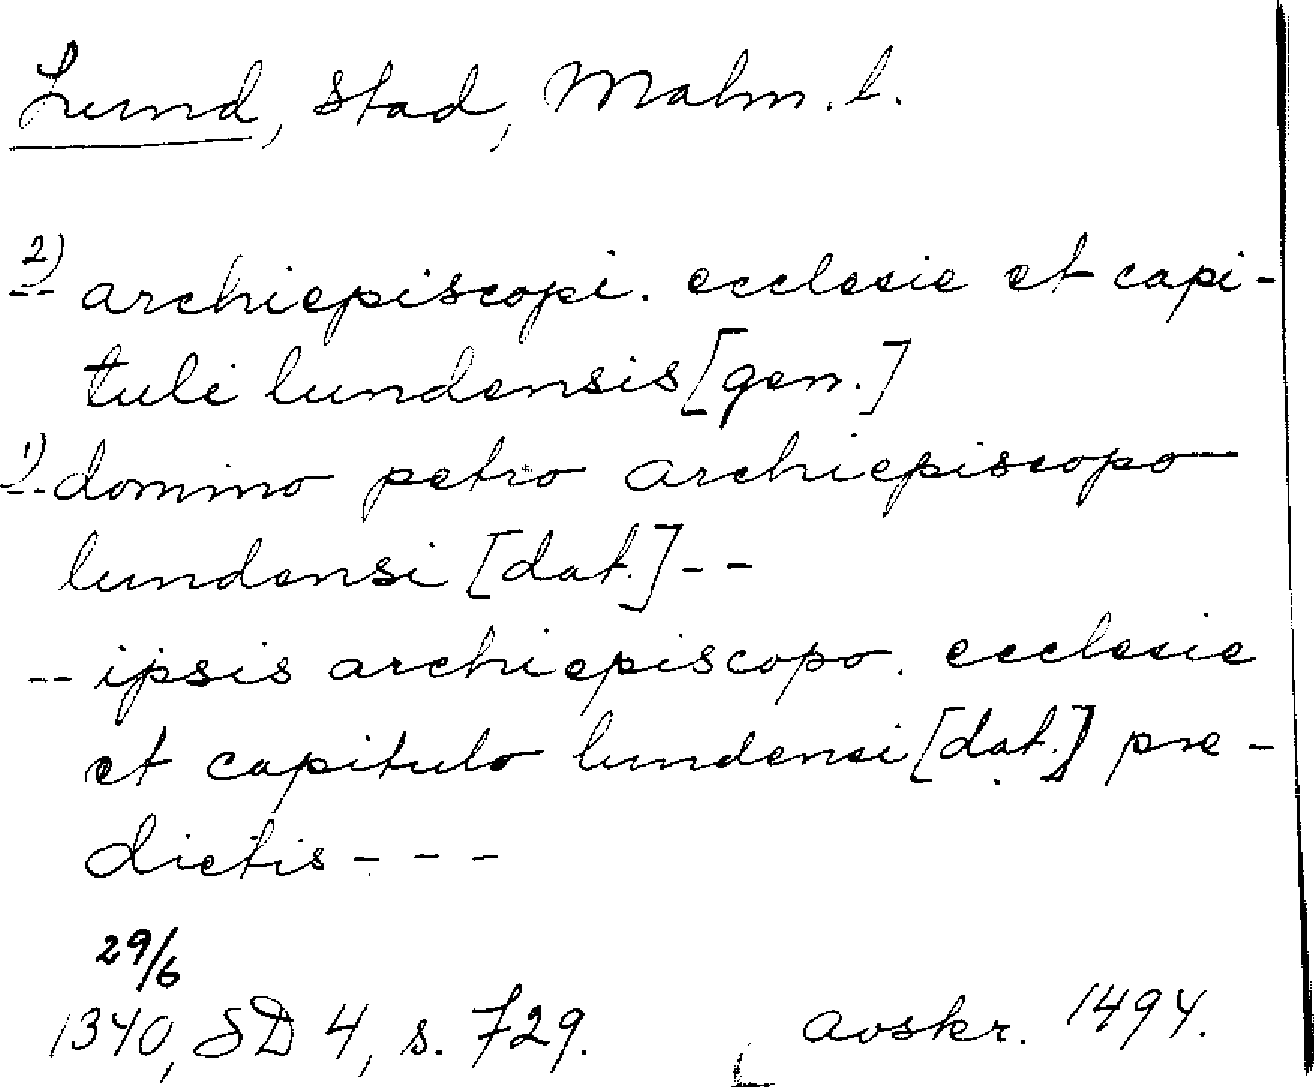 Lund, stad, Malm. l.
2)
-- archiepiscopi. ecclesie et capi-
tuli lundensis [gen.]
1)
-- domino petro archiepiscopo
lundensi [dat.] --
-- ipsis archiepiscopo. ecclesie
et capitulo lundensi [dat.] pre-
dictis ---
29/6
1340, SD 4, s. 729. avskr. 1494.